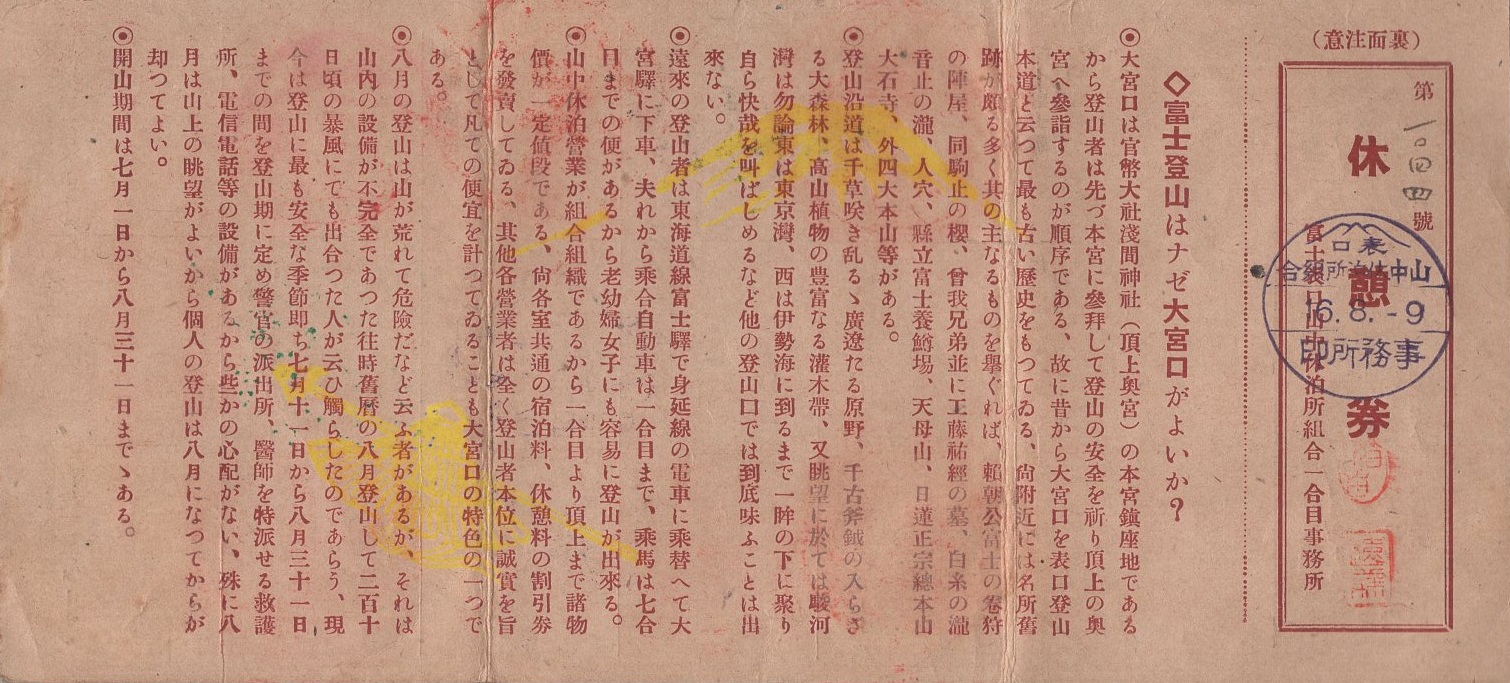 （裏面注意）
第一〇四四號
休憩券
富士表口山中休泊所組合一合目事務所
表口
山中休泊所組合
16.8.-9
事務所印
◇富士登山はナゼ大宮口がよいか？
◉大宮口は官幣大社淺間神社（頂上奥宮）の本宮鎭座地である
から登山者は先づ本宮に參拜して登山の安全を祈り頂上の奥
宮へ參詣するのが順序である、故に昔から大宮口を表口登山
本道と云つて最も古い歴史をもつてゐる、尙附近には名所舊
跡が頗る多く其の主なるものを擧ぐれば、賴朝公富士の卷狩
の陣屋、同駒止の櫻、曾我兄弟並に工藤祐經の墓、白糸の瀧
音止の瀧、人穴、縣立富士養鱒場、天母山、日蓮正宗總本山
大石寺、外四大本山等がある。
◉登山沿道は千草咲き乱るゝ廣遼たる原野、千古斧鉞の入らざ
る大森林、高山植物の豊富なる灌木帶、又眺望に於ては駿河
灣は勿論東は東京灣、西は伊勢海に到るまで一眸の下に聚り
自ら快哉を叫ばしめるなど他の登山口では到底味ふことは出
來ない。
◉遠來の登山者は東海道線富士驛で身延線の電車に乘替へて大
宮驛に下車、夫れから乘合自動車は一合目まで、乘馬は七合
目までの便があるから老幼婦女子にも容易に登山が出來る。
◉山中休泊營業が組合組織であるから一合目より頂上まで諸物
價が一定値段である、尙各室共通の宿泊料、休憩料の割引劵
を發賣してゐる、其他各營業者は全く登山者本位に誠實を旨
として凡ての便宜を計つてゐることも大宮口の特色の一つで
ある。
◉八月の登山は山が荒れて危險だなど云ふ者があるが、それは
山内の設備が不完全であつた往時舊曆の八月登山して二百十
日頃の暴風にでも出合つた人が云ひ觸らしたのであらう、現
今は登山に最も安全な季節即ち七月十一日から八月三十一日
までの間を登山期に定め警官の派出所、醫師を特派せる救護
所、電信電話等の設備があるから些かの心配がない、殊に八
月は山上の眺望がよいから個人の登山は八月になつてからが
却つてよい。
◉開山期間は七月一日から八月三十一日までゝある。